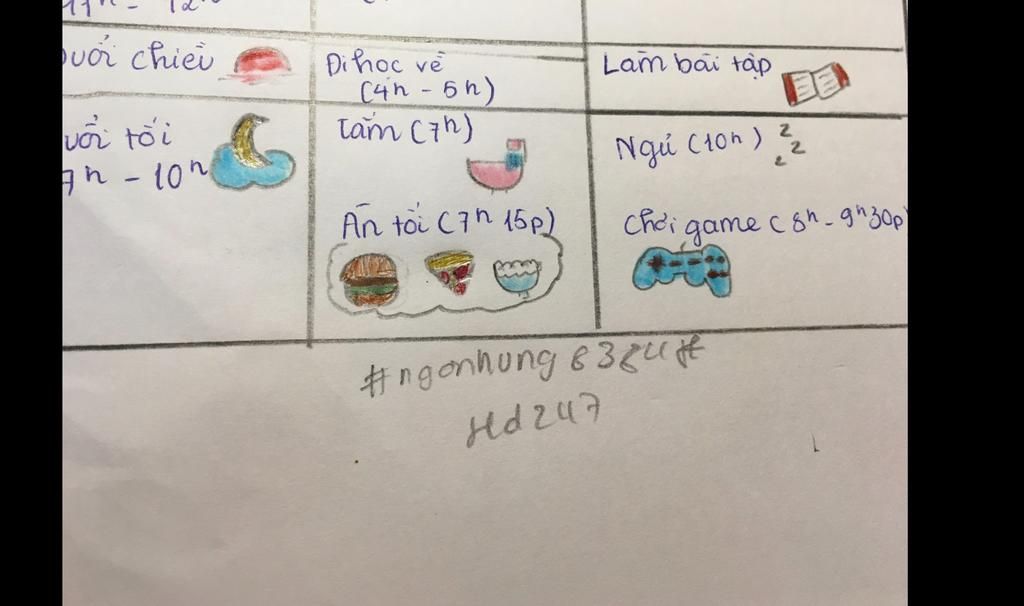 uổi chiều
Đi học về
(4h - 5h)
Làm bài tập
uổi tối
7h - 10h
Tắm (7h)
Ngủ (10h) z z z
Ăn tối (7h 15p)
Chơi game (8h - 9h30p)
Hd247